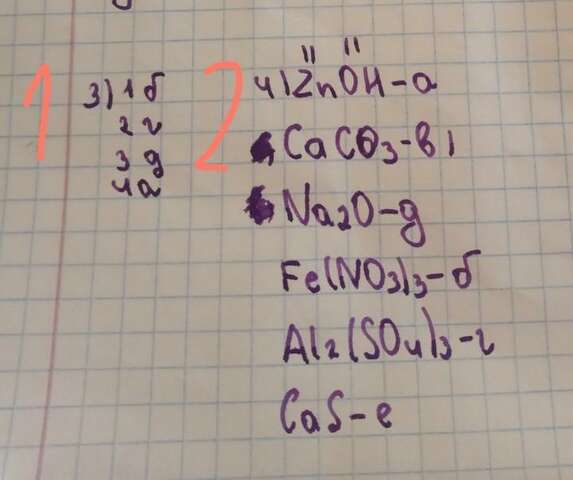 1
3) 1 б
2 г
3 д
4 а
2
4) ZnOH - а
CaCO3 - в 1
Na2O - д
Fe(NO3)3 - б
Al2(SO4)3 - г
CaS - е